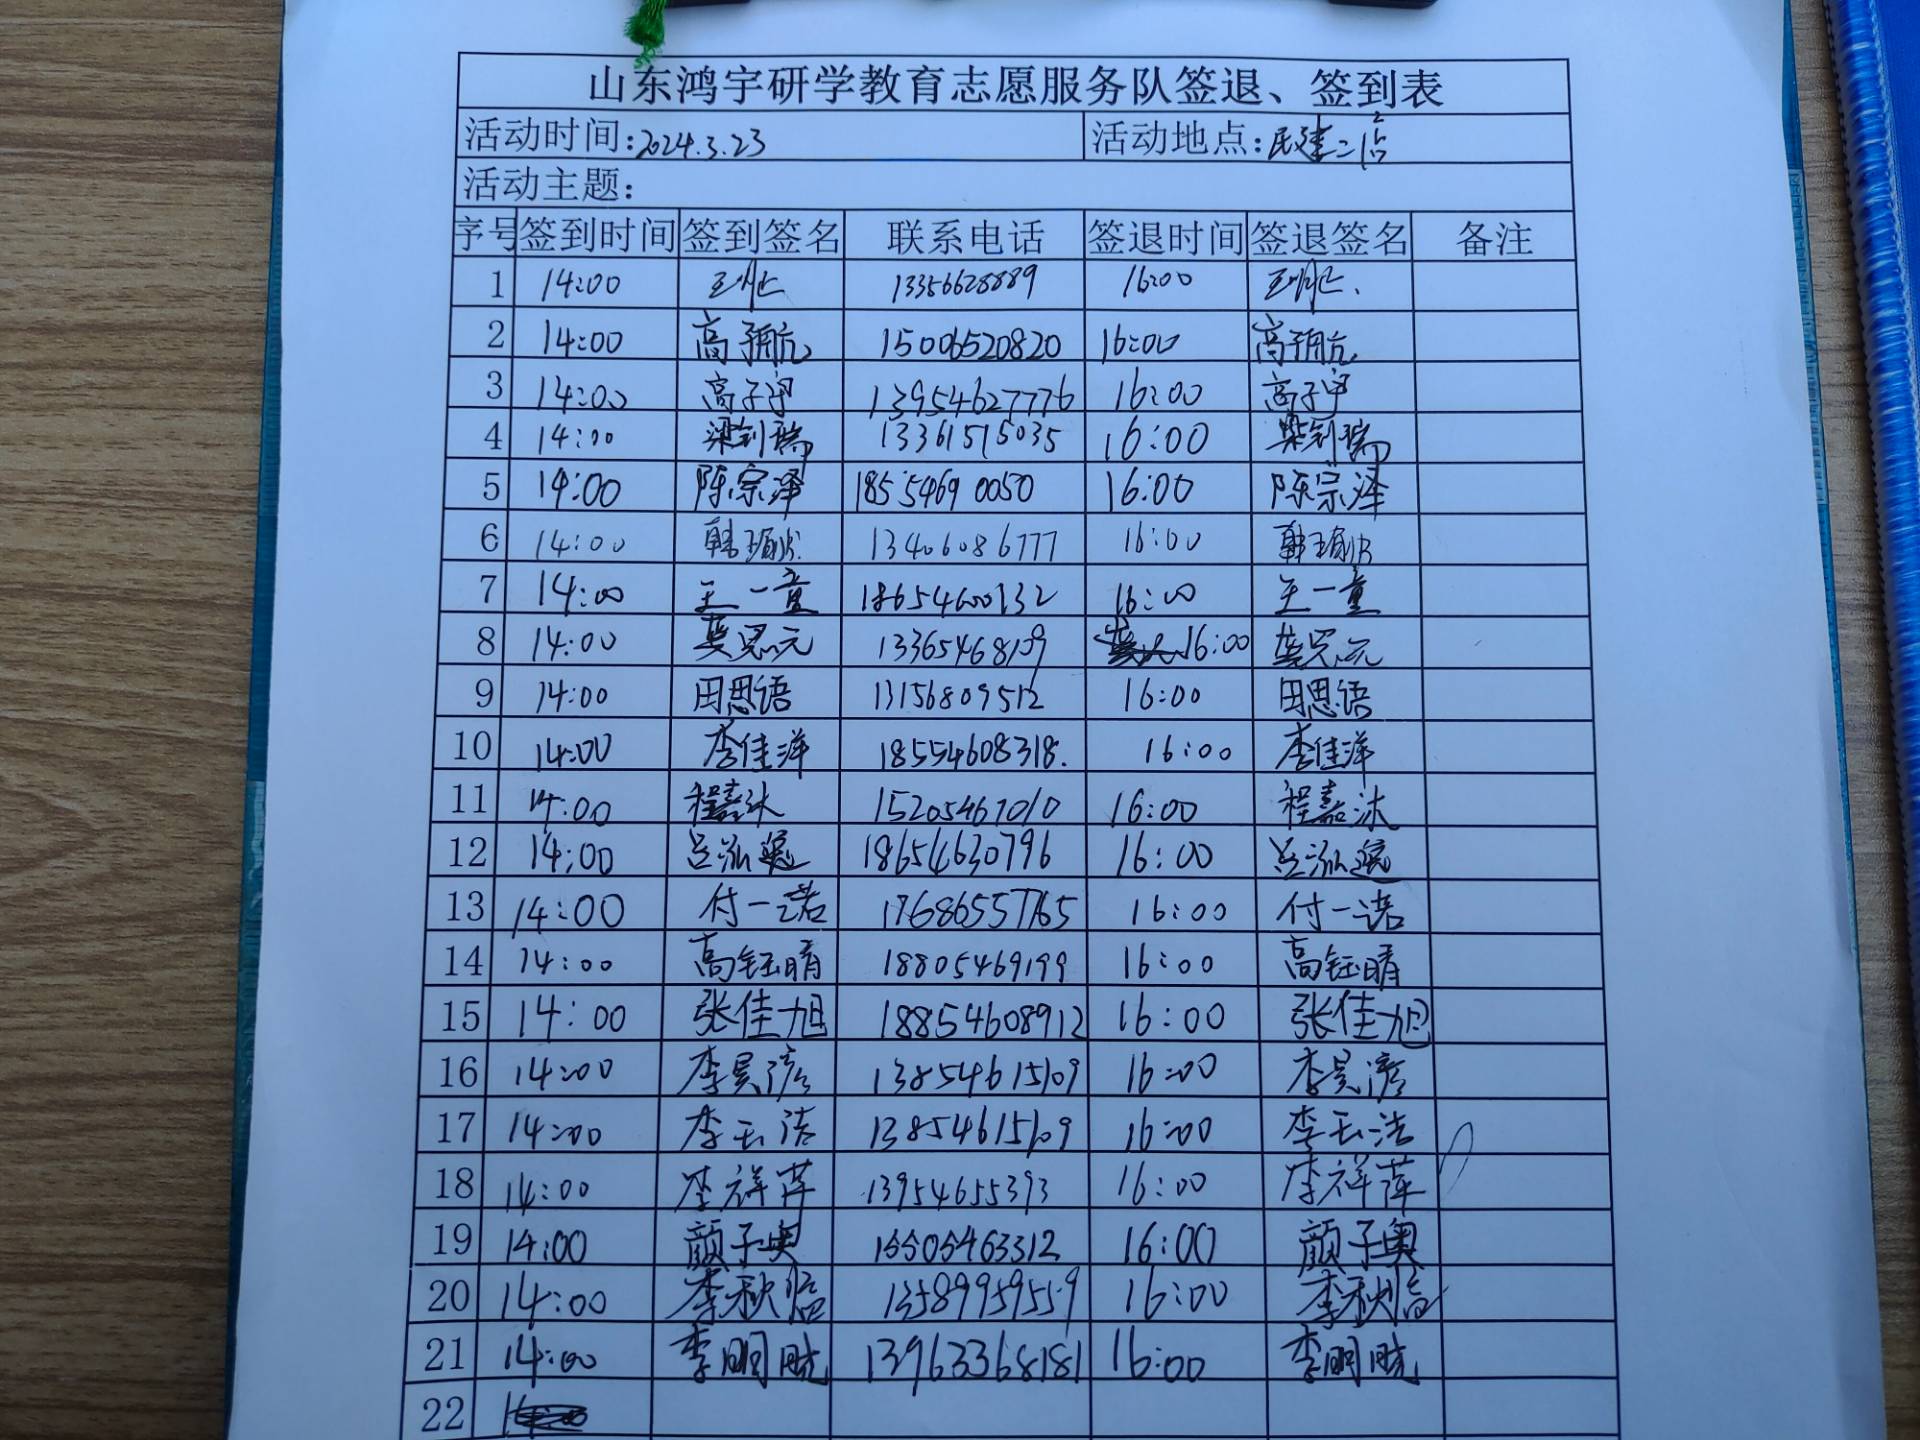 山东鸿宇研学教育志愿服务队签退、签到表
活动时间:2024.3.23 活动地点:民建二
活动主题:
序号 签到时间 签到签名 联系电话 签退时间 签退签名 备注
1 14:00 13356628889 16:00
2 14:00 高子航 15006520820 16:00 高子航
3 14:00 高子宇 13954627776 16:00 高子宇
4 14:00 梁钊瑞 13361515035 16:00 梁钊瑞
5 14:00 陈宗泽 18554690050 16:00 陈宗泽
6 14:00 韩 13406086777 16:00 韩
7 14:00 王一童 18654600132 16:00 王一童
8 14:00 思元 13365468109 16:00 思元
9 14:00 田思语 13156809512 16:00 田思语
10 14:00 李佳洋 18554608318. 16:00 李佳洋
11 14:00 程嘉沐 15205467010 16:00 程嘉沐
12 14:00 吕泓 18654630796 16:00 吕泓
13 14:00 付一诺 17686557765 16:00 付一诺
14 14:00 高钰晴 18805469199 16:00 高钰晴
15 14:00 张佳旭 18854608912 16:00 张佳旭
16 14:00 李昊 13854615109 16:00 李昊
17 14:00 李玉洁 13854615109 16:00 李玉洁
18 14:00 李祥萍 13954655393 16:00 李祥萍
19 14:00 颜子奥 15505463312 16:00 颜子奥
20 14:00 李秋 13589959559 16:00 李秋
21 14:00 李明晄 13963368181 16:00 李明晄
22